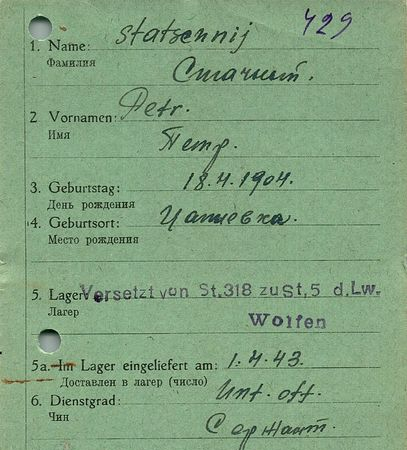 429
1. Name: Statschnij
Фамилия Стачний.
2 Vornamen: Petr.
Имя Петр.
3. Geburtstag: 18.4.1904.
День рождения
4. Geburtsort:
Место рождения
5. Lager Versetzt von St,318 zu St,5 d.Lw.
Лагер Wolfen
5a. Im Lager eingeliefert am: 1.4.43.
Доставлен в лагер (число)
6. Dienstgrad: Unt. off.
Чин Сержант.